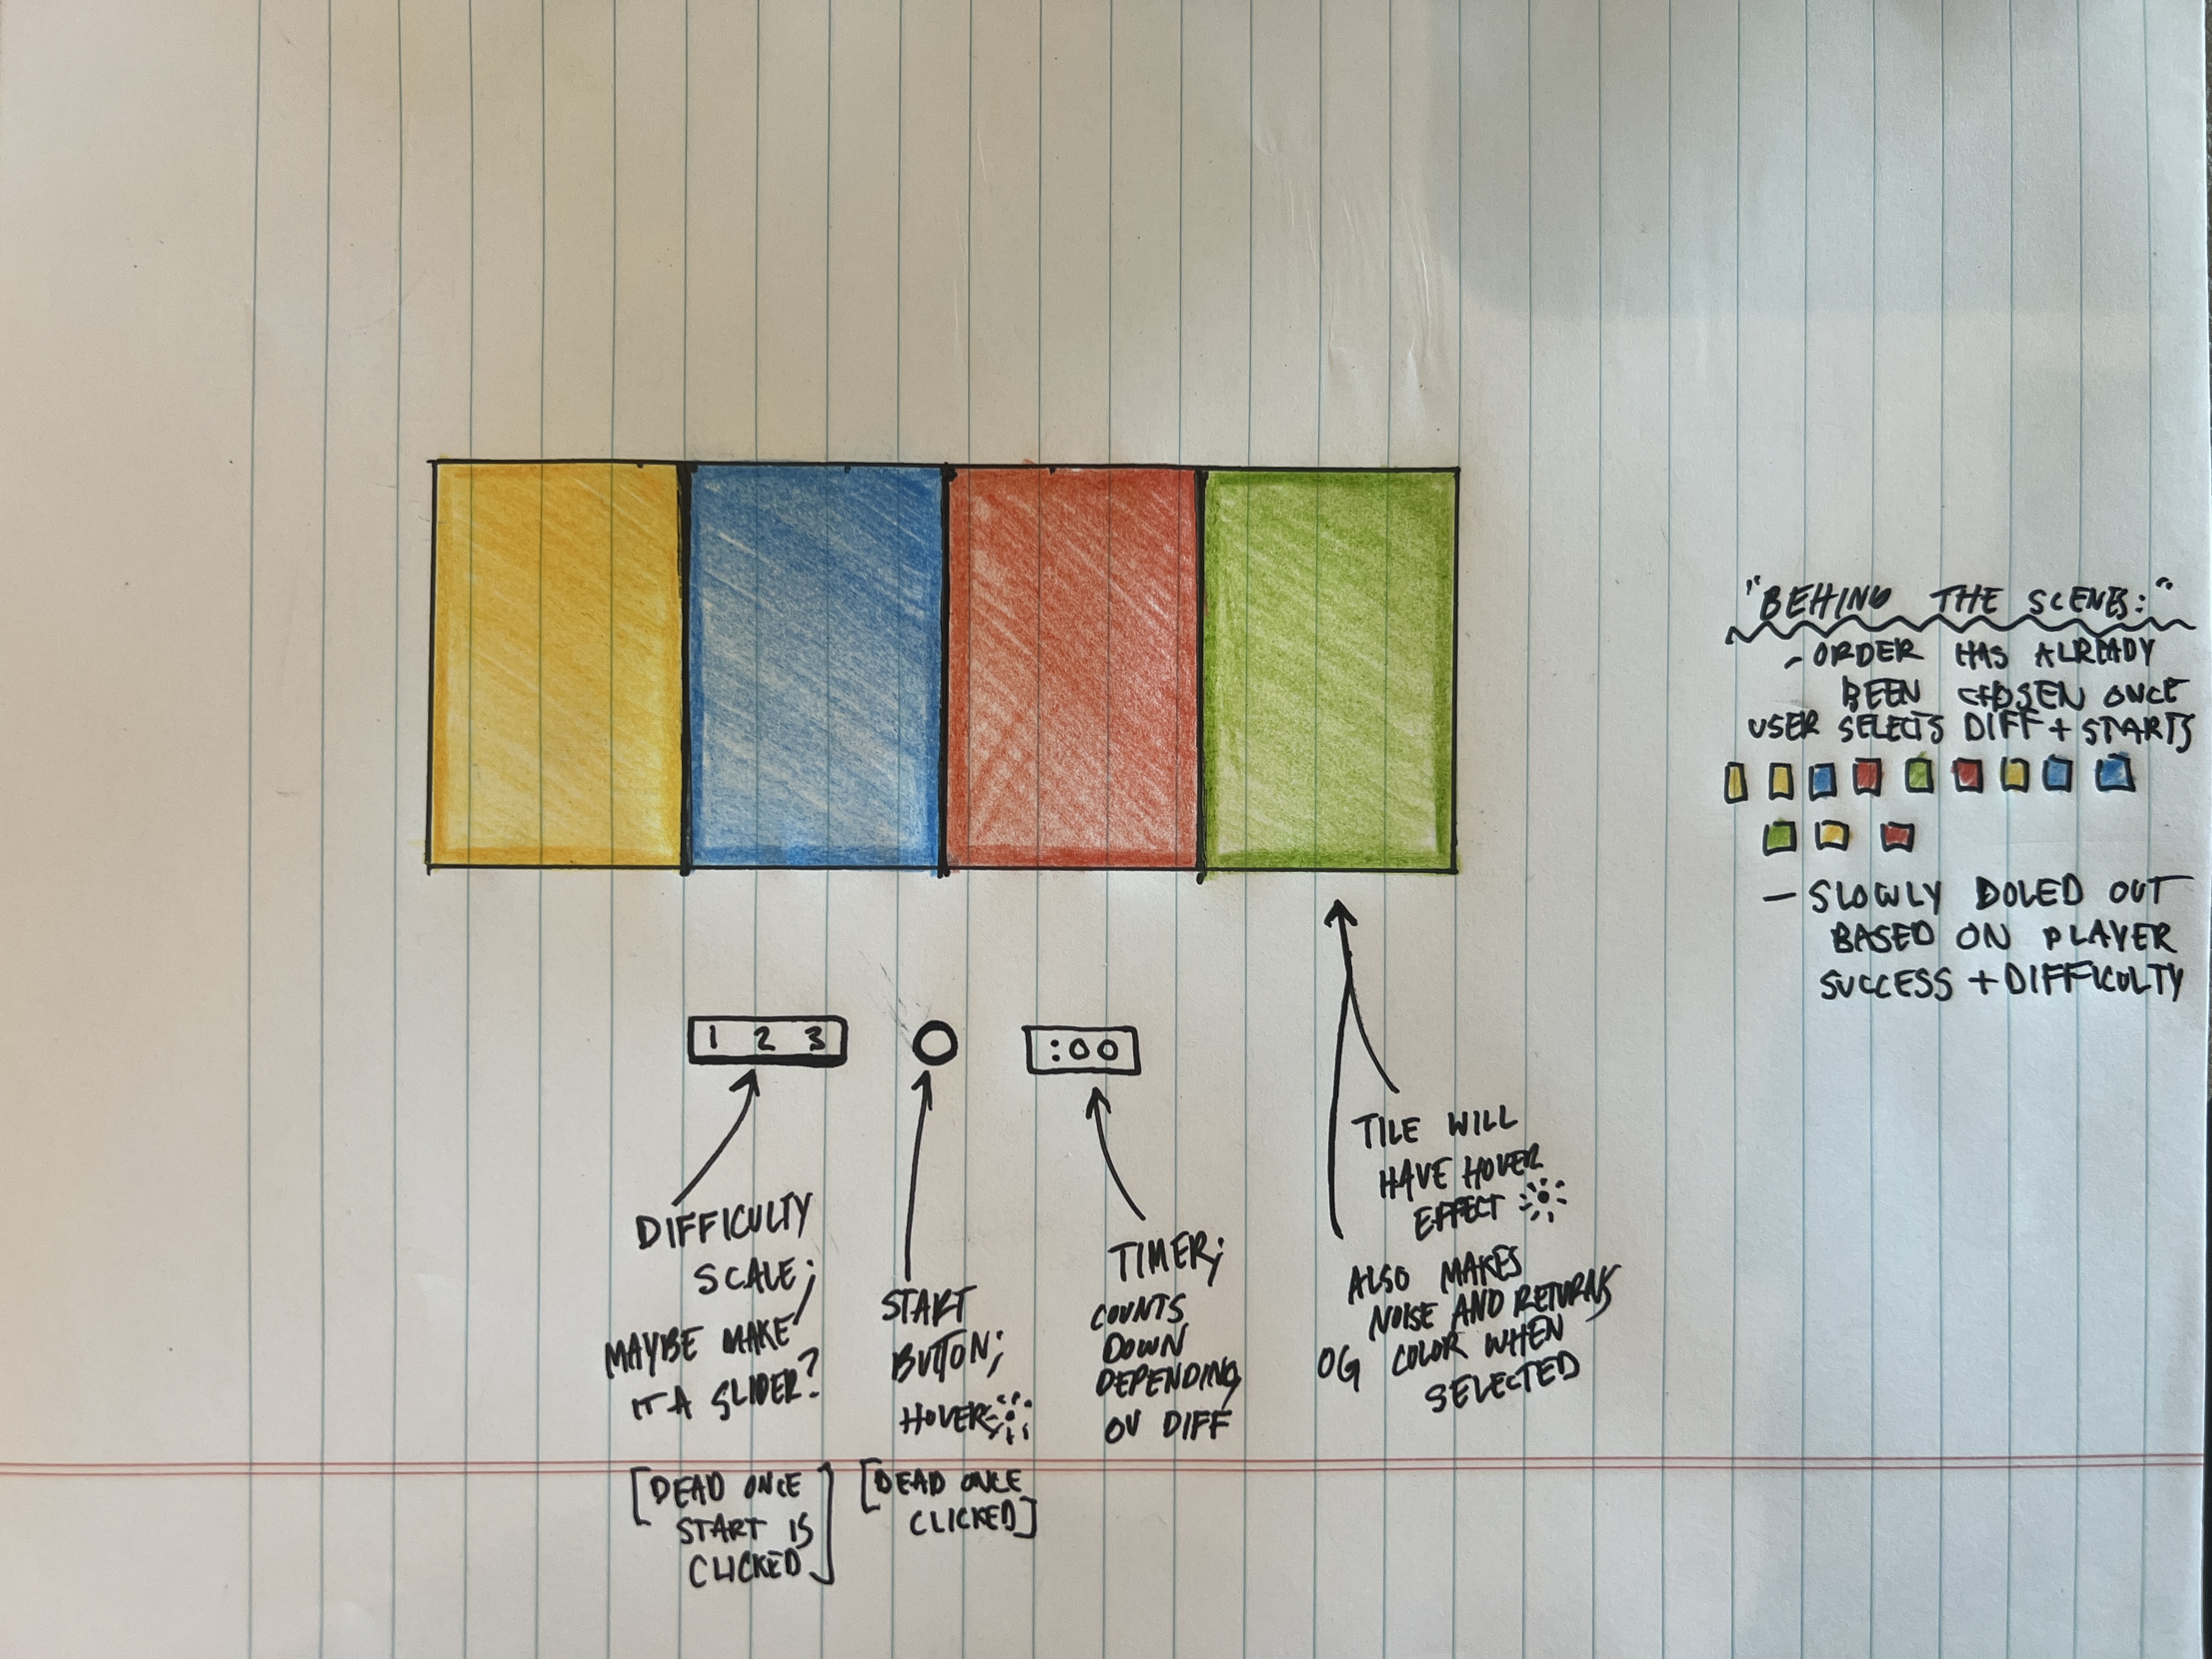 "BEHIND THE SCENES:"
- ORDER HAS ALREADY
BEEN CHOSEN ONCE
USER SELECTS DIFF + STARTS
- SLOWLY DOLED OUT
BASED ON PLAYER
SUCCESS + DIFFICULTY
1 2 3
:00
DIFFICULTY
SCALE;
MAYBE MAKE
IT A SLIDER?
[DEAD ONCE
START IS
CLICKED]
START
BUTTON;
HOVER
[DEAD ONCE
CLICKED]
TIMER;
COUNTS
DOWN
DEPENDING
ON DIFF
TILE WILL
HAVE HOVER
EFFECT
ALSO MAKES
NOISE AND RETURNS
OG COLOR WHEN
SELECTED